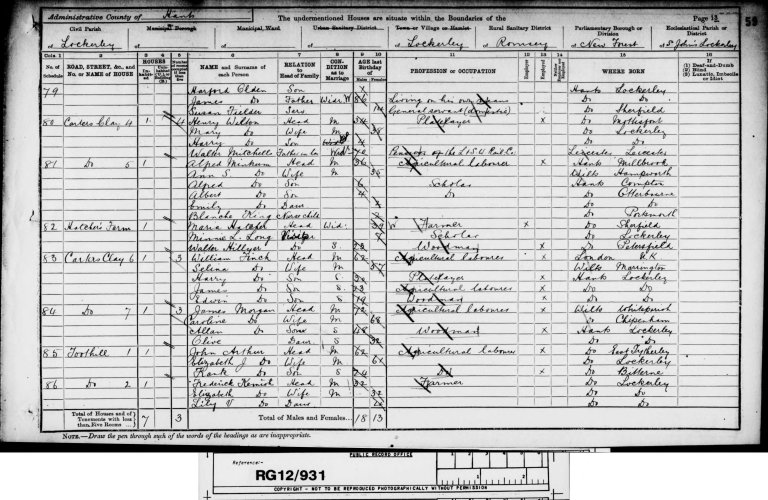 Administrative County of Hants The undermentioned Houses are situate within the Boundaries of the Page 13 59
Civil Parish Municipal Borough Municipal Ward Urban Sanitary District Town or Village or Hamlet Rural Sanitary District Parliamentary Borough or Division Ecclesiastical Parish or District
of Lockerley of of of of Lockerley of Romsey of New Forest of St John's Lockerley
Cols 1 2 3 4 5 6 7 8 9 10 11 12 13 14 15 16
No. of Schedule ROAD, STREET, &c., and No. or NAME of HOUSE HOUSES NAME and Surname of each Person RELATION to Head of Family CONDITION as to Marriage AGE last Birthday of PROFESSION or OCCUPATION Employer Employed WHERE BORN If (1) Deaf-and-Dumb (2) Blind (3) Lunatic, Imbecile or Idiot
79 Harford Olden Son Hants Lockerley
James Do Father Widr 86 Living on his own means Do Do
Susan Fielder Serv General servant (domestic) Do Sherfield
80 Carters Clay 4 1 4 Henry Walton Head M 54 Platelayer x Do Mottisfont
Mary Do Wife M 58 Do Lockerley
Harry Do Son Do Do
Walter Mitchell Father in law Widr 70 Leicester Leicester
81 Do 5 1 Alfred Head M Agricultural labourer x Hants Millbrook
Ann S Do Wife M Wilts
Alfred Do Son 6 Scholar Hants Compton
Albert Do Son 4 Do Do Otterbourne
Emily Do Daur Do Do
Blanche King Nurse child Do
82 Hatcher's Farm 1 Maria Hatcher Head Wid Farmer x Do Sherfield
Minnie L. Long Visitor Scholar Do Lockerley
Walter Hillyer Do S. 23 Woodman x Do Petersfield
83 Carters Clay 6 1 3 William Finch Head M 62 Agricultural labourer x London U.K
Selina Do Wife M 57 Wilts
Harry Do Son S 30 Platelayer x Hants Lockerley
James Do Son S 23 Agricultural labourer x Do Do
Edwin Do Son S 19 Woodman x Do Do
84 Do 7 1 3 James Morgan Head M 72 Agricultural labourer x Wilts Whiteparish
Caroline Do Wife M 68 Do Chipenham
Allan Do Son S 48 Woodman x Hants Lockerley
Clive Daur S 32 Do Do
85 Foothill 1 1 John Arthur Head M 62 Agricultural labourer x Do East Tytherley
Elizabeth J Do Wife M Do Lockerley
Frank Do Son S 24 Do x Do Bitterne
86 Do 2 1 Frederick Kemish Head M 32 Farmer Do Lockerley
Elizabeth Do Wife M 32 Do Do
Lily V Do Daur Do Do
Total of Houses and of Tenements with less than Five Rooms 7 3 Total of Males and Females... 18 13
NOTE.—Draw the pen through such of the words of the headings as are inappropriate.
PUBLIC RECORD OFFICE
Reference:-
RG12/931
COPYRIGHT - NOT TO BE REPRODUCED PHOTOGRAPHICALLY WITHOUT PERMISSION